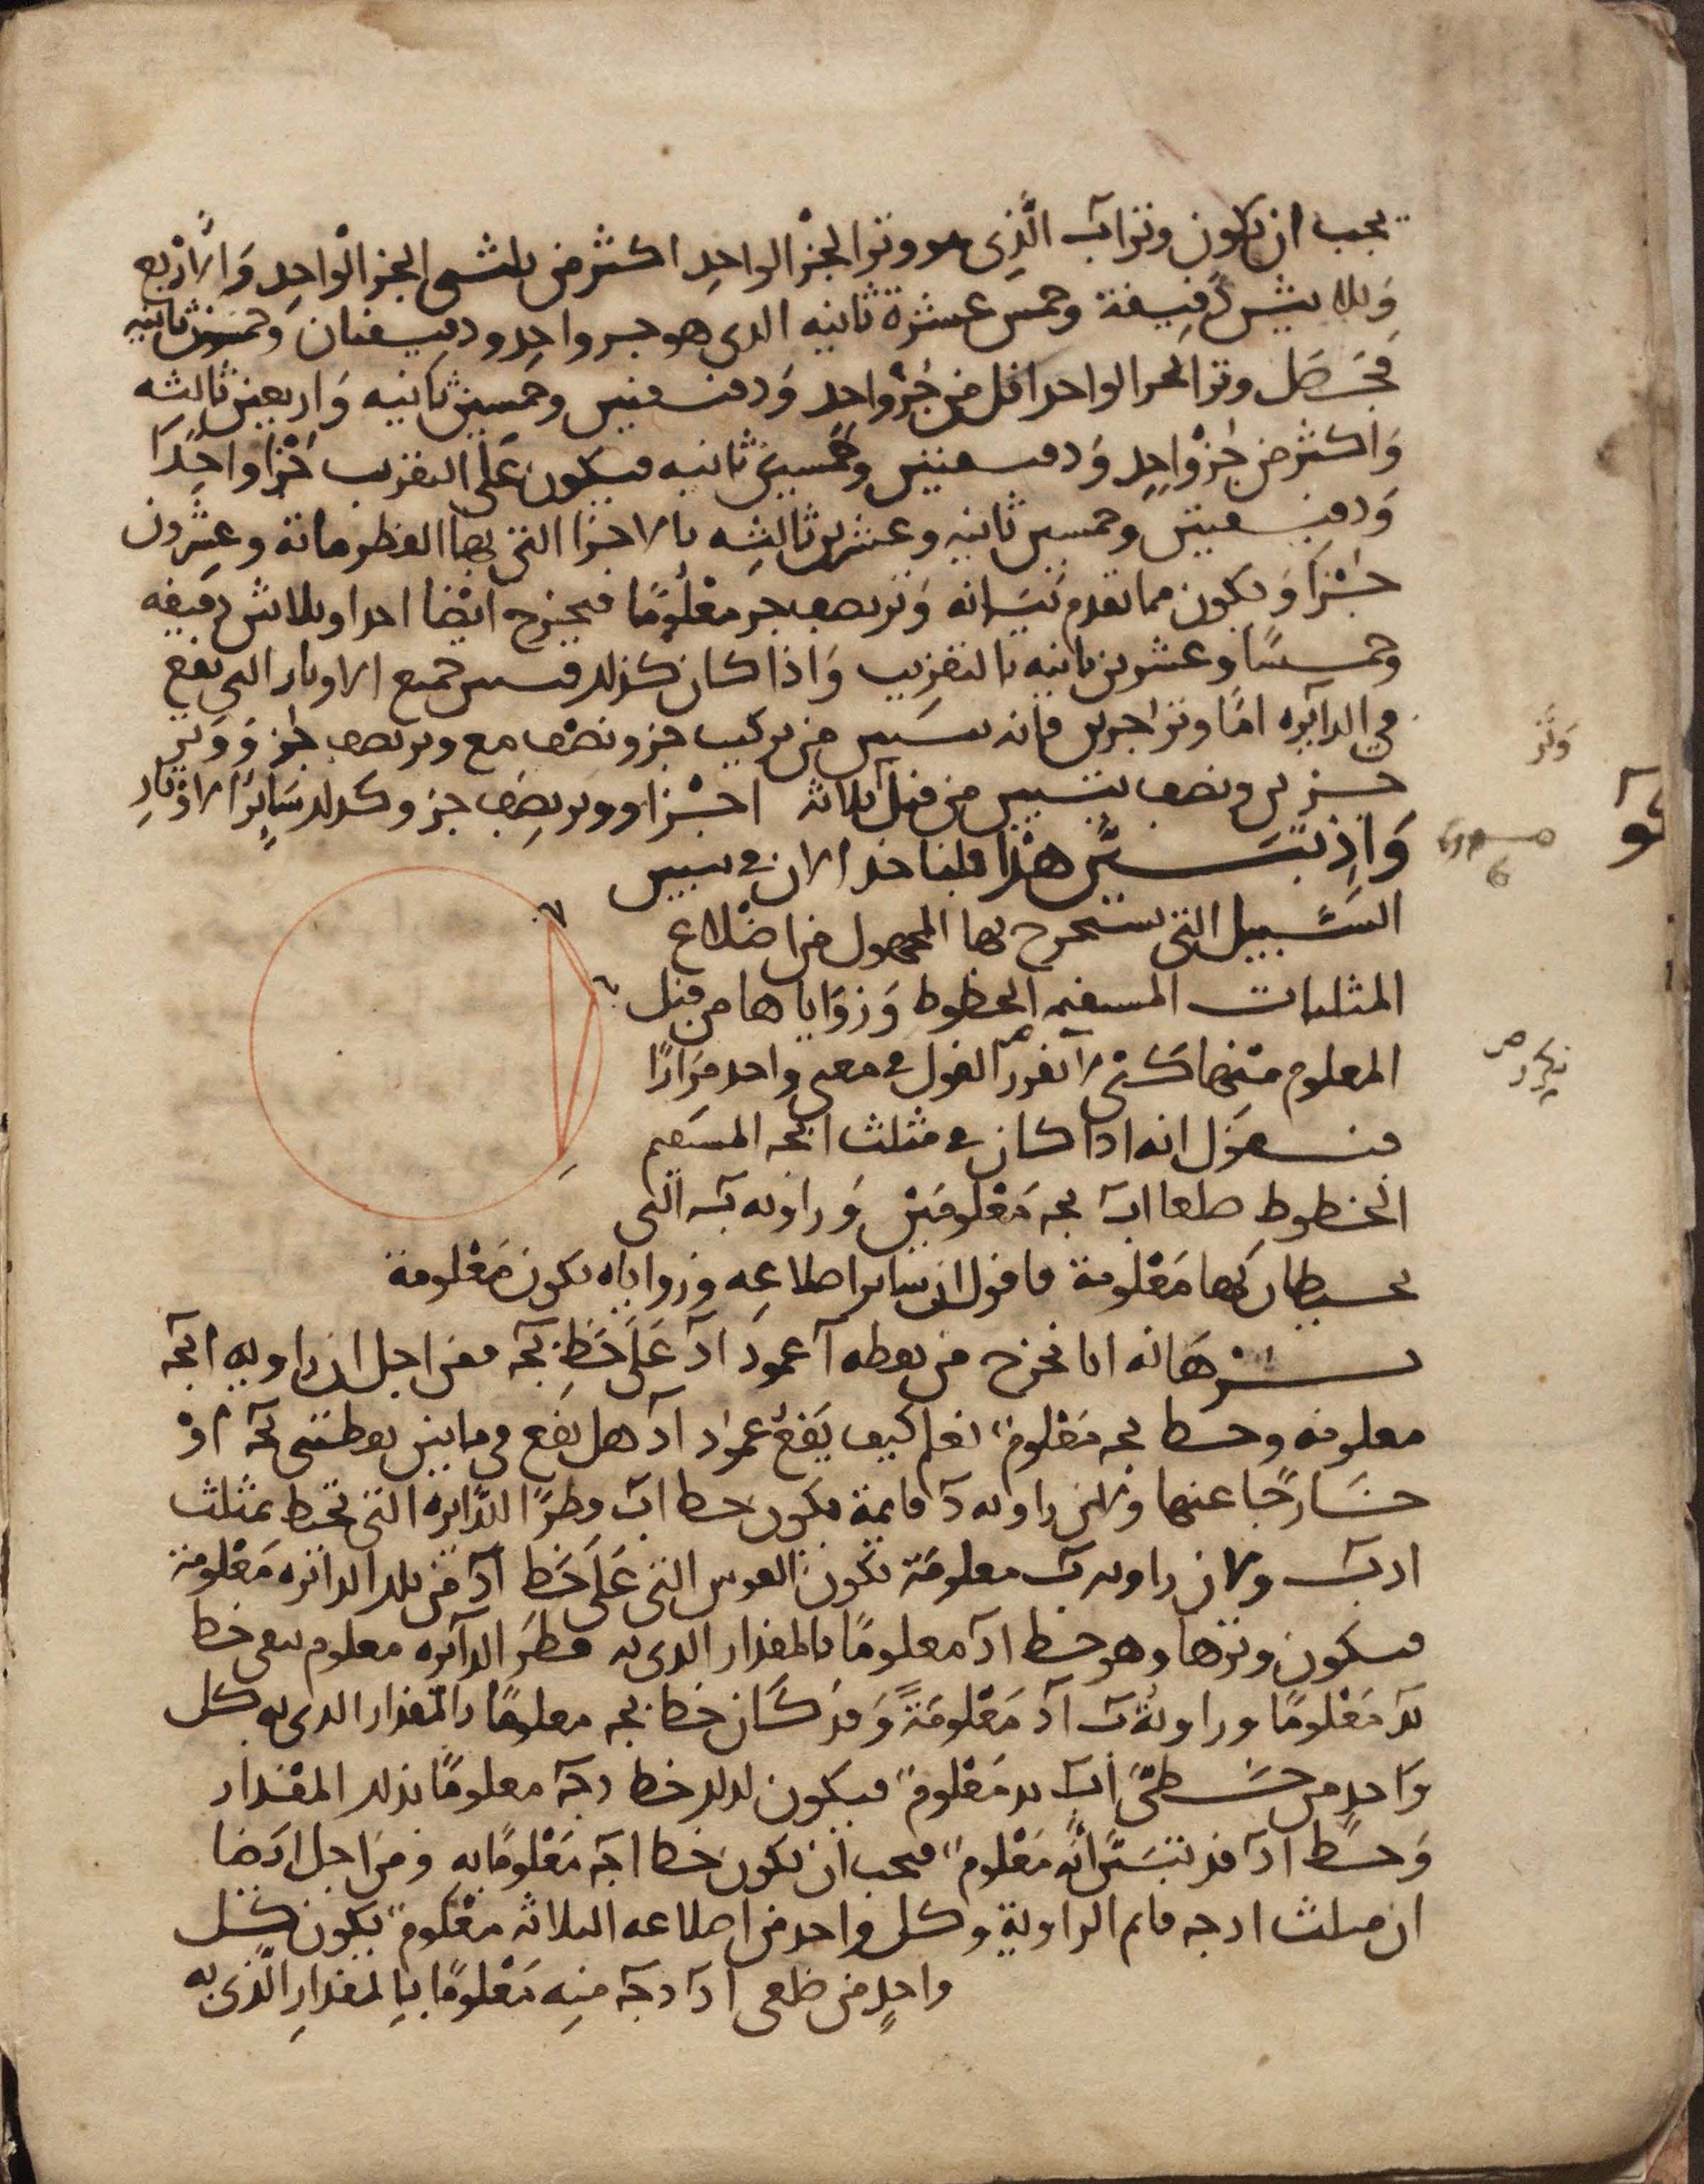 يجب ان يكون وتر اب الذى هو وتر الجز الواحد اكثر من ثلثى الجز الواحد والاربع
وثلاثين دقيقة وخمس عشرة ثانيه الذى هو جز واحد ودقيقتان وخمسون ثانيه
فحصل وتر الجز الواحد اقل من جز واحد ودقيقتين وخمسين ثانيه واربعين ثالثه
واكثر من جز واحد ودقيقتين وخمسين ثانيه فيكون على التقريب جزا واحدا
ودقيقتين وخمسين ثانيه وعشرين ثالثه بالاجزا التى بها القطر مائة وعشرون
جزا ويكون مما تقدم تبيانه وتر نصف جز معلوما فيخرج ايضا احدا وثلاثين دقيقه
وخمسا وعشرين ثانيه بالتقريب واذا كان كذلك فتبين جميع الاوتار التى تقع
فى الدائره اما وتر جزين فانه يتبين من تركيب جز ونصف مع وتر نصف جز ووتر
وتر
جزين ونصف يتبين من قبل ثلاثة اجزا ووتر نصف جز وكذلك سائر الاوتار
واذ تبين هذا فلناخذ الان فى تبيين
السبيل التى يستخرج بها المجهول من اضلاع
المثلثات المستقيمه الخطوط وزواياها من قبل
المعلوم منها كى لا نقرر القول فى معنى واحد مرارا
نكرر صح
فنقول انه اذا كان فى مثلث ابجه المستقيم
الخطوط ضلعا اب بجه معلومين وزاويه ب التى
يحيطان بها معلومة فاقول ان سائر اضلاعه وزواياه تكون معلومة
برهانه انا نخرج من نقطه ا عمود اد على خط بجه فمن اجل ان زاويه ابجه
معلومه وخط بجه معلوم نعلم كيف يقع عمود اد هل يقع فى ما بين نقطتى بجه او
خارجا عنها ولان زاويه د قايمة يكون خط اب قطرا للدايره التى تحيط بمثلث
ادب ولان زاويه ب معلومة تكون القوس التى على خط اد من تلك الدائره معلومة
فيكون وترها وهو خط اد معلوما بالمقدار الذى به قطر الدائره معلوم يبقى خط
بد معلوما وزاوية ب اد معلومة وقد كان خط بجه معلوما بالمقدار الذى به كل
واحد من خطى اب بد معلوم فيكون لذلك خط دجه معلوما بذلك المقدار
وخط اد قد تبين انه معلوم فيجب ان يكون خط اجه معلوما به ومن اجل ايضا
ان مثلث ادجه قائم الزاوية وكل واحد من اضلاعه الثلاثه معلوم يكون كل
واحد من ضلعى اد دجه منه معلوما بالمقدار الذى به